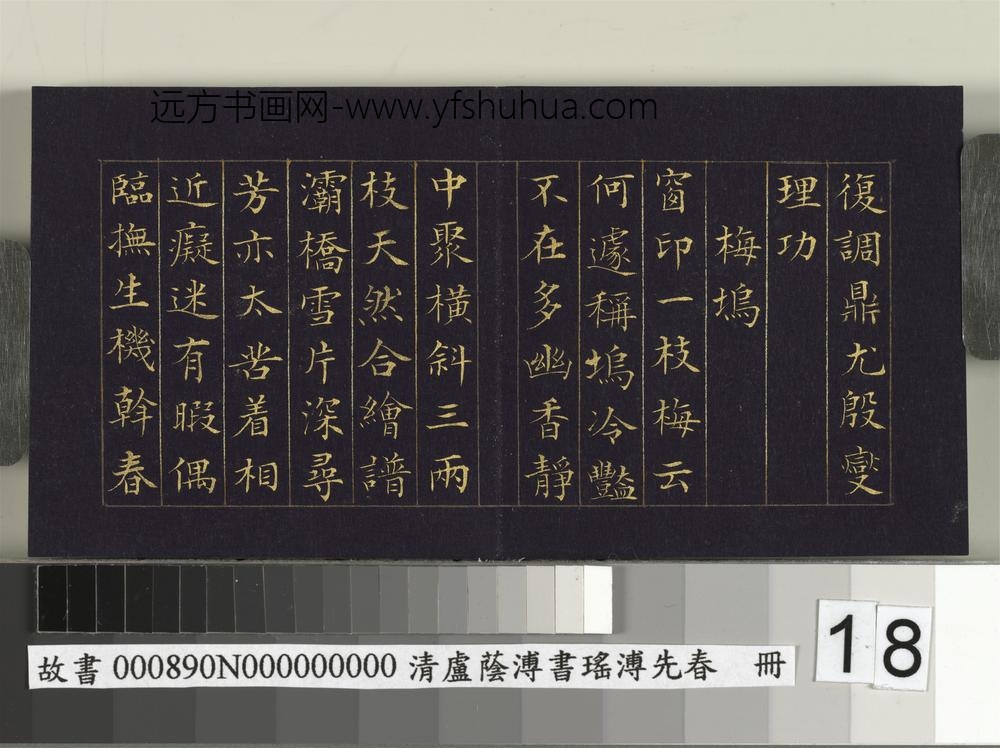 远方书画网-www.yfshuhua.com
復調鼎尤殷燮
理功
梅塢
窗印一枝梅云
何遽稱塢冷豔
不在多幽香靜
中聚橫斜三兩
枝天然合繪譜
灞橋雪片深尋
芳亦太苦着相
近癡迷有暇偶
臨撫生機斡春
故書 000890N000000000 清盧蔭溥書瑤溥先春 冊
18